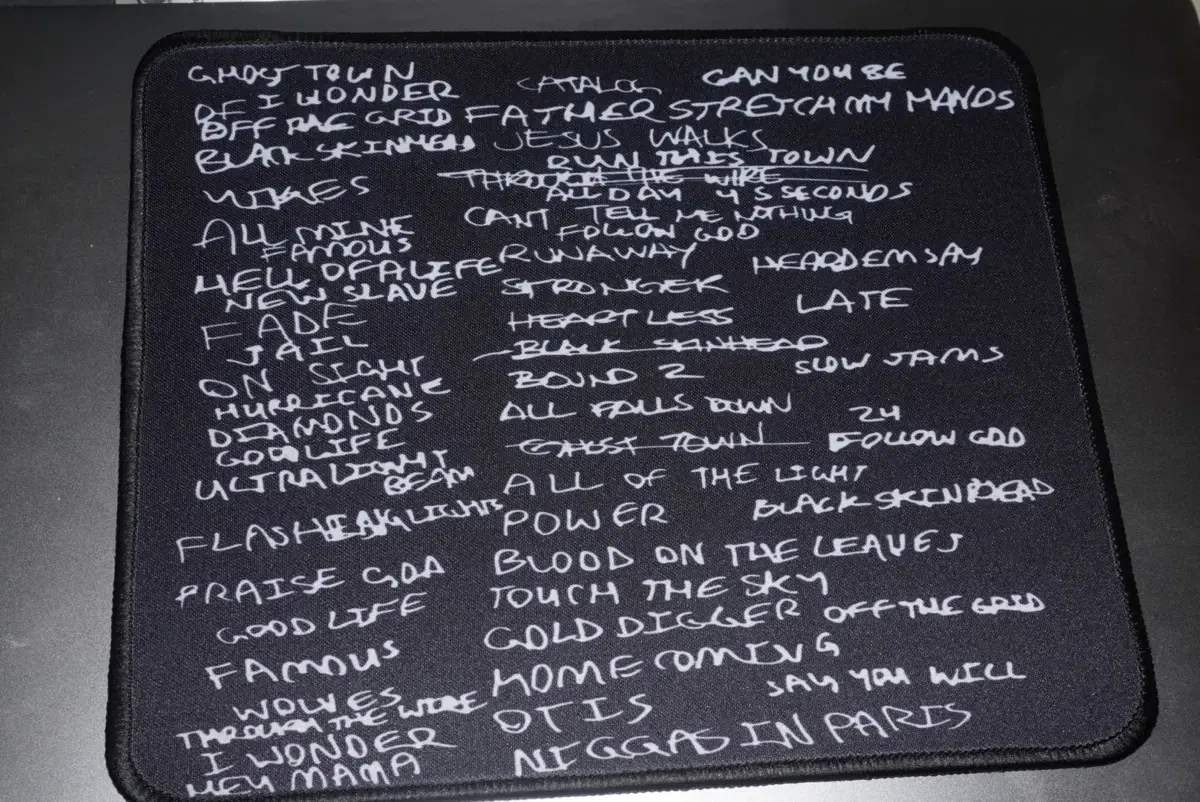 GHOST TOWN
OF I WONDER
OFF THE GRID
BLACK SKINHEAD
VIKES
ALL MINE
FAMOUS
HELL OF A LIFE
NEW SLAVE
FADE
JAIL
ON SIGHT
HURRICANE
DIAMONDS
GOOD LIFE
ULTRALIGHT
BEAM
FLASHING LIGHTS
PRAISE GOD
GOOD LIFE
FAMOUS
WOLVES
THROUGH THE WIRE
I WONDER
HEY MAMA
CATALOG
FATHER STRETCH MY HANDS
JESUS WALKS
RUN THIS TOWN
THROUGH THE WIRE
ALL DAY 4 5 SECONDS
CANT TELL ME NOTHING
FOLLOW GOD
RUNAWAY
STRONGER
HEARTLESS
BLACK SKINHEAD
BOUND 2
ALL FALLS DOWN
GHOST TOWN
ALL OF THE LIGHT
POWER
BLOOD ON THE LEAVES
TOUCH THE SKY
GOLD DIGGER
HOMECOMING
OTIS
NIGGAS IN PARIS
CAN YOU BE
HEARD EM SAY
LATE
SLOW JAMS
24
FOLLOW GOD
BLACK SKINHEAD
OFF THE GRID
SAY YOU WILL